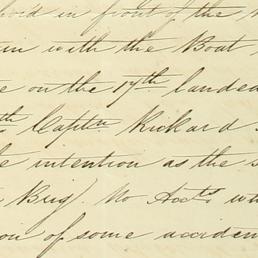 hold in front of the
with the Boat
on the 17th landed
Captn Rickard
the intention as the s
Brig). No Acct.s wh
ion of some acciden